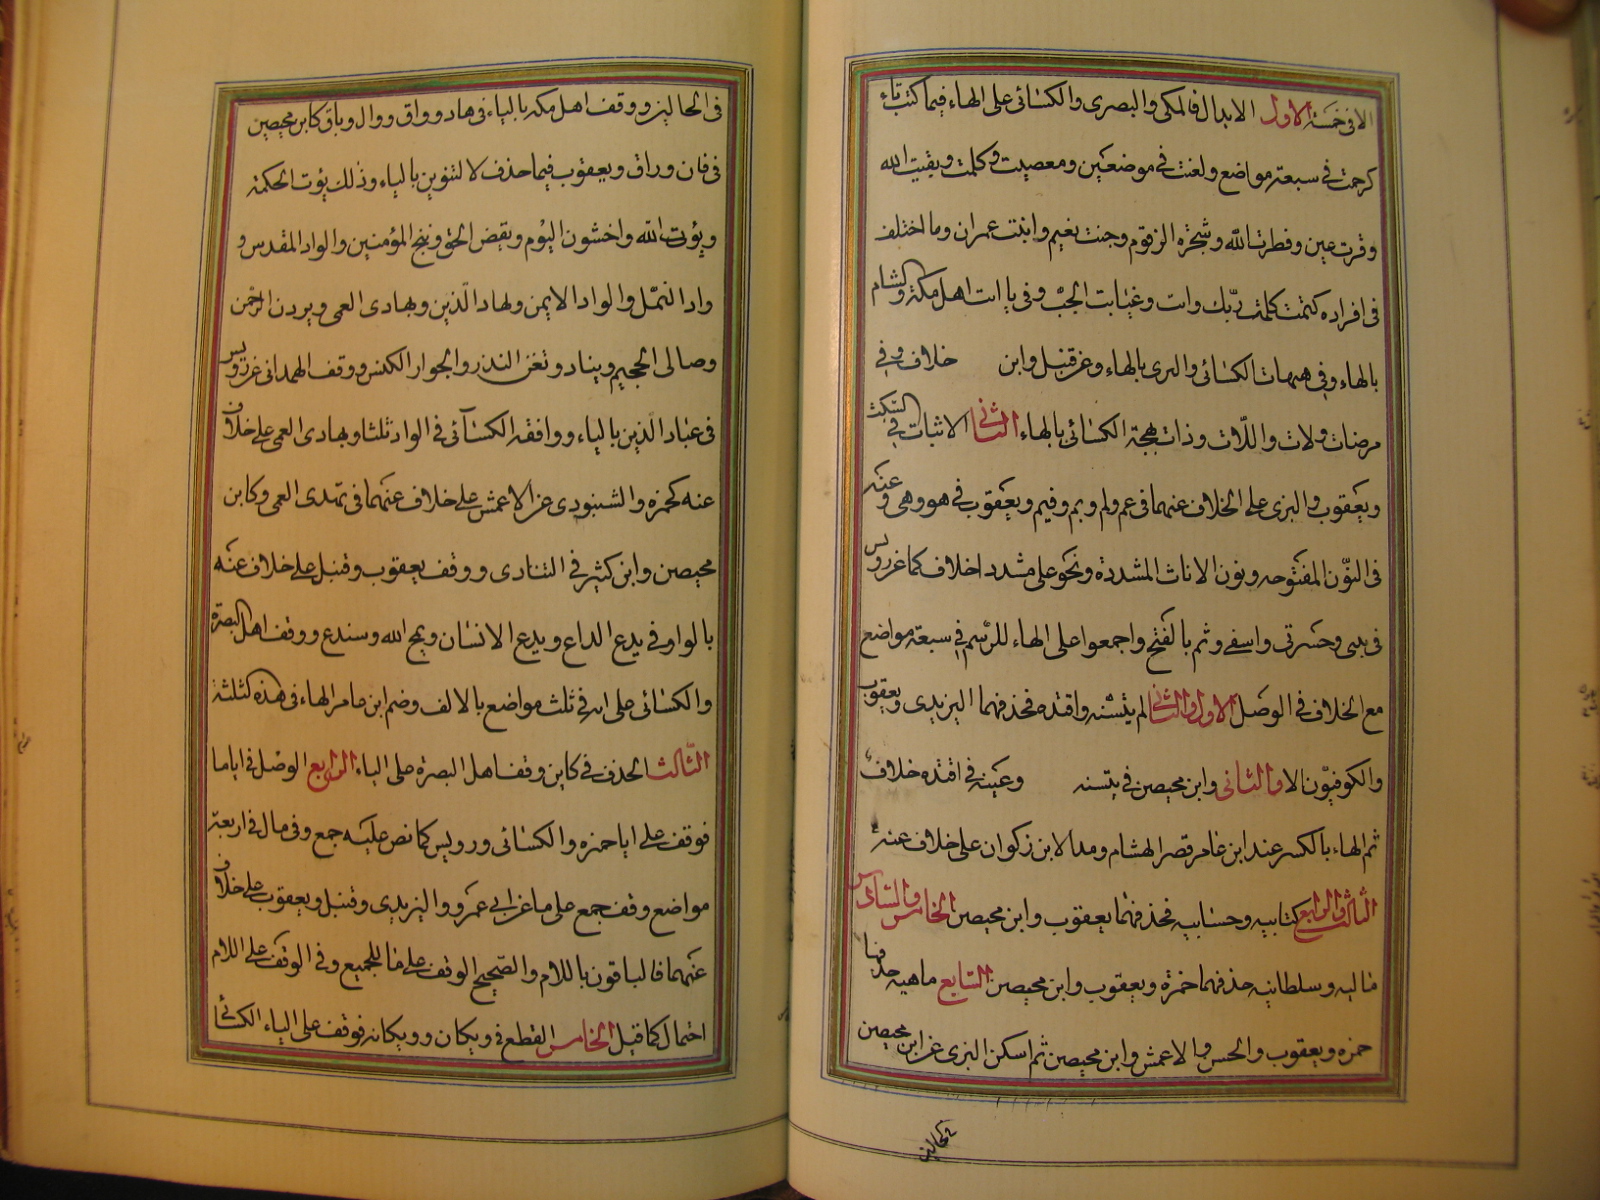 الا فى خمسة الاول الابدال فالمكى والبصرى والكسائى على الهاء فيما كتب تاء
كرحمت فى سبعة مواضع ولعنت فى موضعين ومعصيت وكلمت وبقيت الله
وقرت عين وفطرت الله وشجرة الزقوم وجنت نعيم وابنت عمران وما اختلف
فى افراده كتمت كلمت ربك وات وغيابت الجب وفى ياابت اهل مكة والشام
بالهاء وفى هيهات الكسائى والبزى بالهاء وعن قنبل وابن خلاف وفى
مرضات ولات واللات وذات بهجة الكسائى بالهاء الثانى الاثبات فى السكت
ويعقوب والبزى على الخلاف عنهما فى عم ولم وبم وفيم ويعقوب فى هو وهى وعنه
فى النون المفتوحه ونون الاناث المشددة ونحو على مشدد اخلاف كما عن رويس
فى يا وحسرتى واسفى وثم بالفتح واجمعوا على الهاء للرسم فى سبعة مواضع
مع الخلاف فى الوصل الاول والثانى لم يتسنه واقتده فحذفهما اليزيدى ويعقوب
والكوفيون الا والثانى وابن محيصن فى يتسنه وعنه فى اقتده خلاف
ثم الهاء بالكسر عند ابن عامر قصرا لهشام ومدا لابن ذكوان على خلاف عنه
الثالث والرابع كتابيه وحسابيه فحذفهما يعقوب وابن محيصن الخامس والسادس
ماليه وسلطانيه حذفهما حمزة ويعقوب وابن محيصن السابع ماهيه حذفها
حمزه ويعقوب والحسن والاعمش وابن محيصن ثم اسكن البزى عن ابن محيصن
فى الحالين
فى الحالين ووقف اهل مكه بالياء فى هاد وواق ووال وباق كابن محيصن
فى فان وراق ويعقوب فيما حذف لا لتنوين بالياء وذلك يؤت الحكمة
ويؤت الله واخشون اليوم ويقض الحق وننج المؤمنين والواد المقدس و
واد النمل والواد الايمن ولهاد الذين وبهادى العمى ويردن الرحمن
وصالى الجحيم ويناد وتغن النذر والجوار الكنس ووقف الهمدانى عن رويس
فى عباد الذين بالياء ووافقه الكسائى فى الواد ثلثا وبهادى العمى على خلاف
عنه كحمزه والشنبوذى عن الاعمش على خلاف عنهما فى تهدى العمى وكابن
محيصن وابن كثير فى التنادى ووقف يعقوب وقنبل على خلاف عنه
بالواو فى يدع الداع ويدع الانسان ويمح الله وسندع ووقف اهل البصرة
والكسائى على ايه فى ثلث مواضع بالالف وضم ابن عامر الهاء فى هذه كثلثة
الثالث الحذف فى كاين وقف اهل البصرة على الياء الرابع الوصل فى اياما
فوقف على ايا حمزه والكسائى ورويس كما نص عليه جمع وفى مال فى اربعة
مواضع وقف جمع على ما عن ابى عمرو واليزيدى وقنبل ويعقوب على خلاف
عنهما فالباقون باللام والصحيح الوقف على ما للجميع وفى الوقف على اللام
احتمال كما قيل الخامس القطع فى ويكان وويكانه فوقف على الياء الكسائى